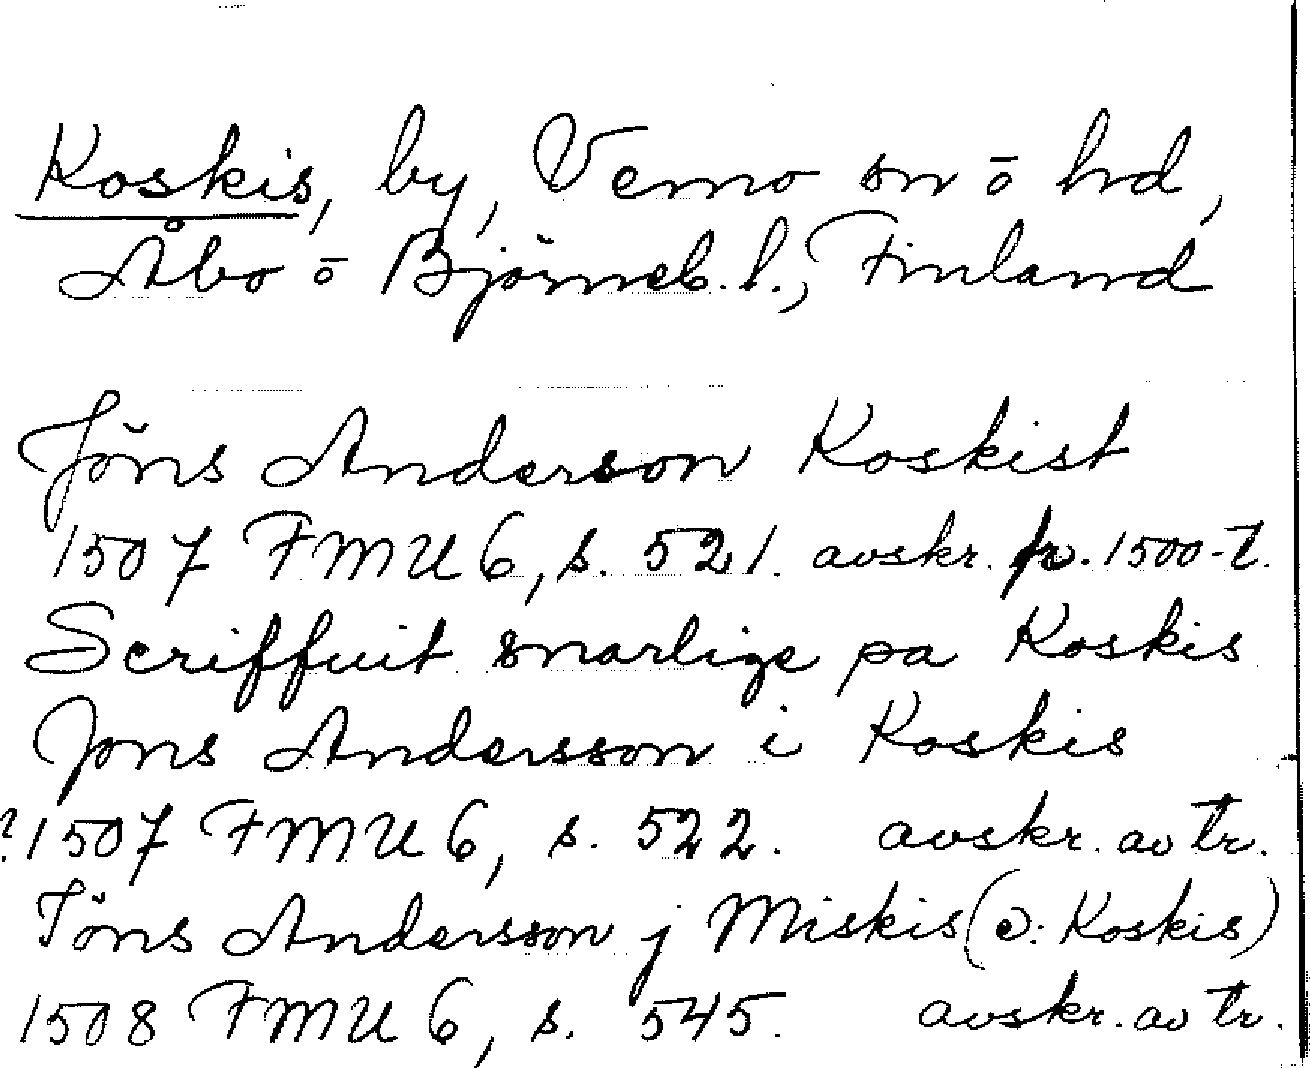 Koskis, by, Vemo sn ō hd,
Åbo ō Björneb. l., Finland
Jöns Anderson Koskist
1507 FMU 6, s. 521. avskr. fr. 1500-t.
Scriffuit snarlige pa Koskis
Jons Andersson i Koskis
?1507 FMU 6, s. 522. avskr. av tr.
Jöns Andersson j Miskis (ɔ: Koskis)
1508 FMU 6, s. 545. avskr. av tr.